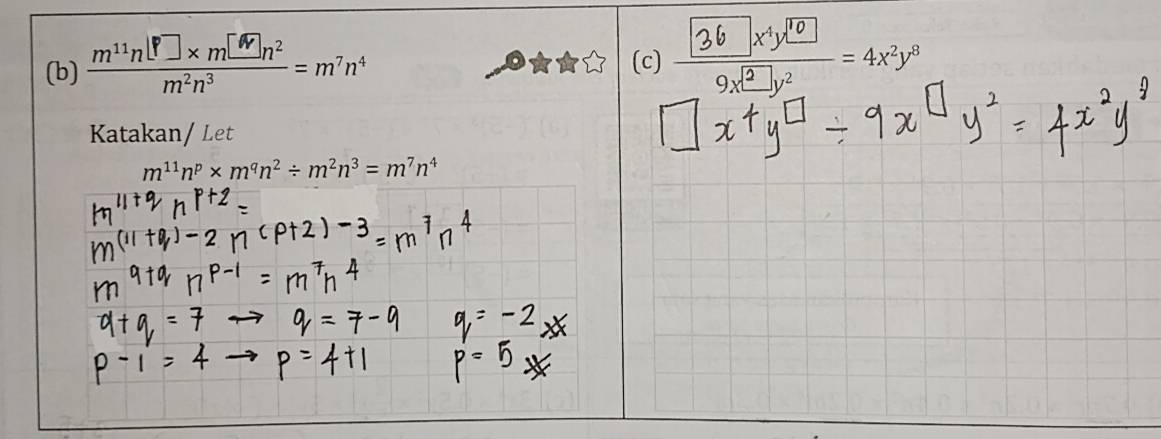 (b) m¹¹n[p] × m[q]n² / m²n³ = m⁷n⁴
Katakan/ Let
m¹¹nᵖ × m^q n² ÷ m²n³ = m⁷n⁴
m^(11+q) n^(p+2) =
m^((11+q)-2) n^((p+2)-3) = m⁷n⁴
m^(9+q) n^(p-1) = m⁷n⁴
9+q = 7 → q = 7-9 q = -2
p-1 = 4 → p = 4+1 p = 5
(c) [36]x⁴y[10] / 9x[2]y² = 4x²y⁸
□x⁴y^□ ÷ 9x^□ y² = 4x²y⁸